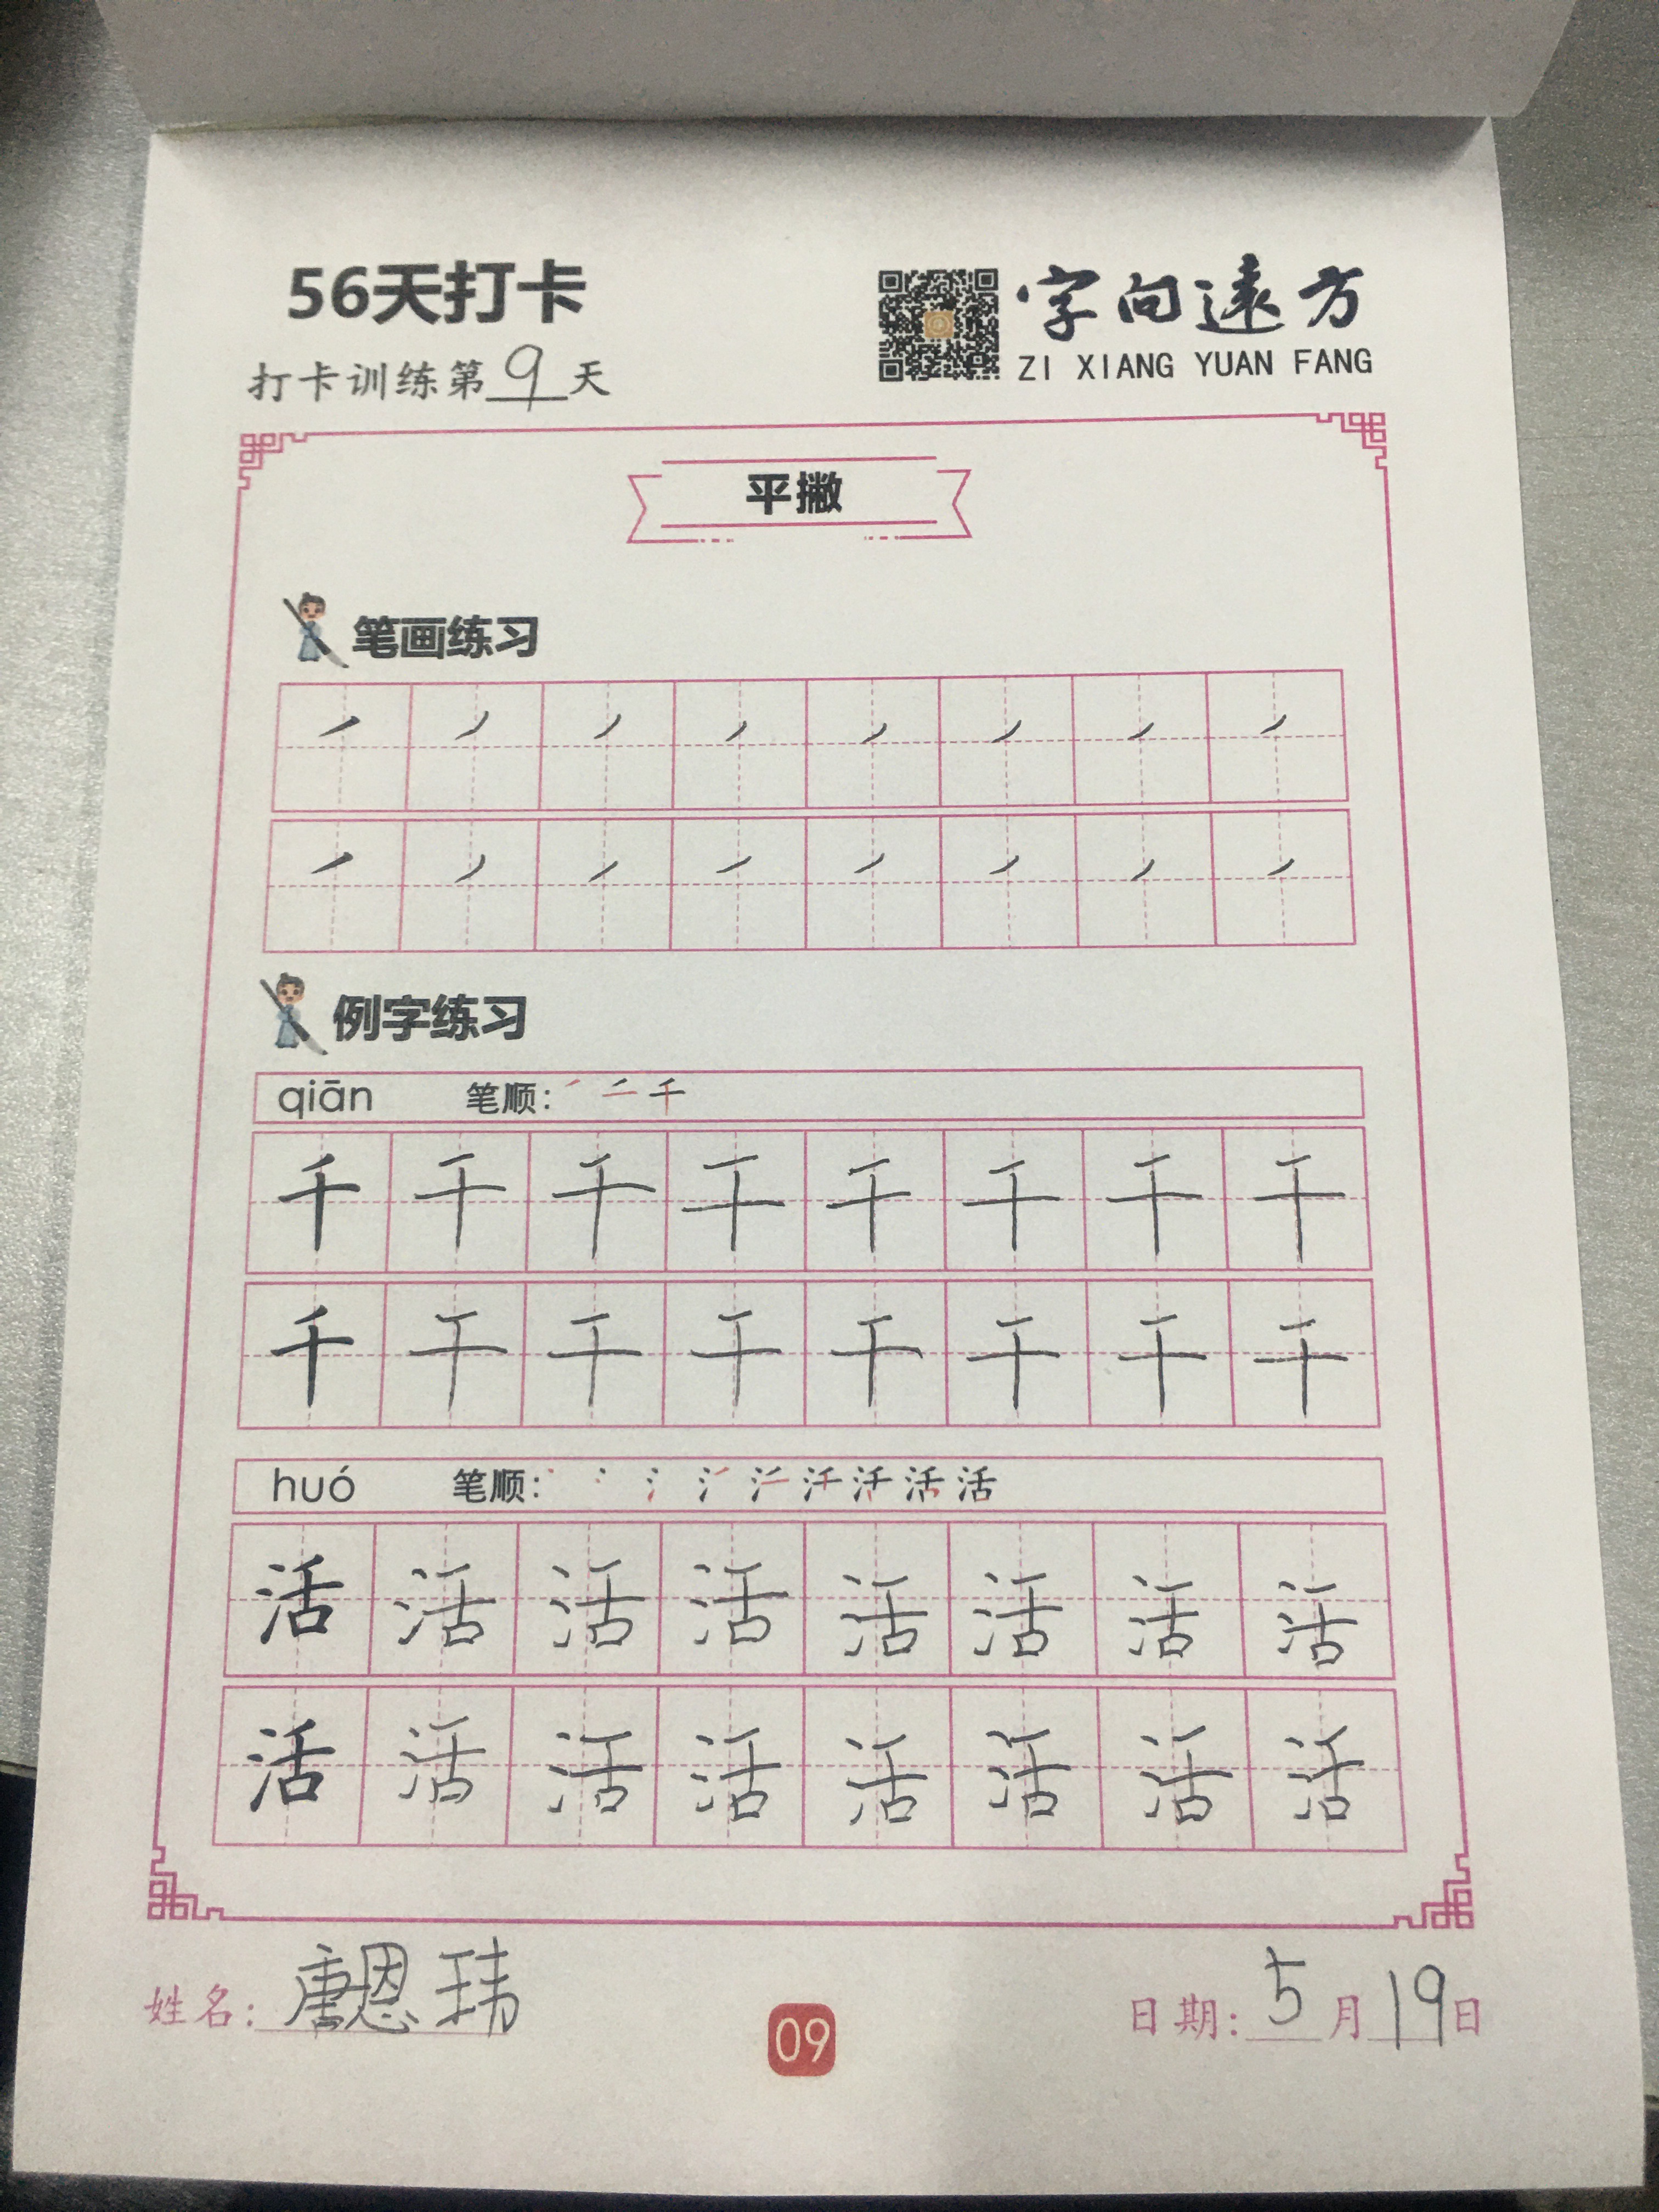 56天打卡
打卡训练第9天
字向遠方
ZI XIANG YUAN FANG
平撇
笔画练习
㇒ ㇒ ㇒ ㇒ ㇒ ㇒ ㇒ ㇒
㇒ ㇒ ㇒ ㇒ ㇒ ㇒ ㇒ ㇒
例字练习
qiān 笔顺: ㇒ 二 千
千 千 千 千 千 千 千 千
千 千 千 千 千 千 千 千
huó 笔顺: 活
活 活 活 活 活 活 活 活
活 活 活 活 活 活 活 活
姓名: 唐恩玮
09
日期: 5月19日